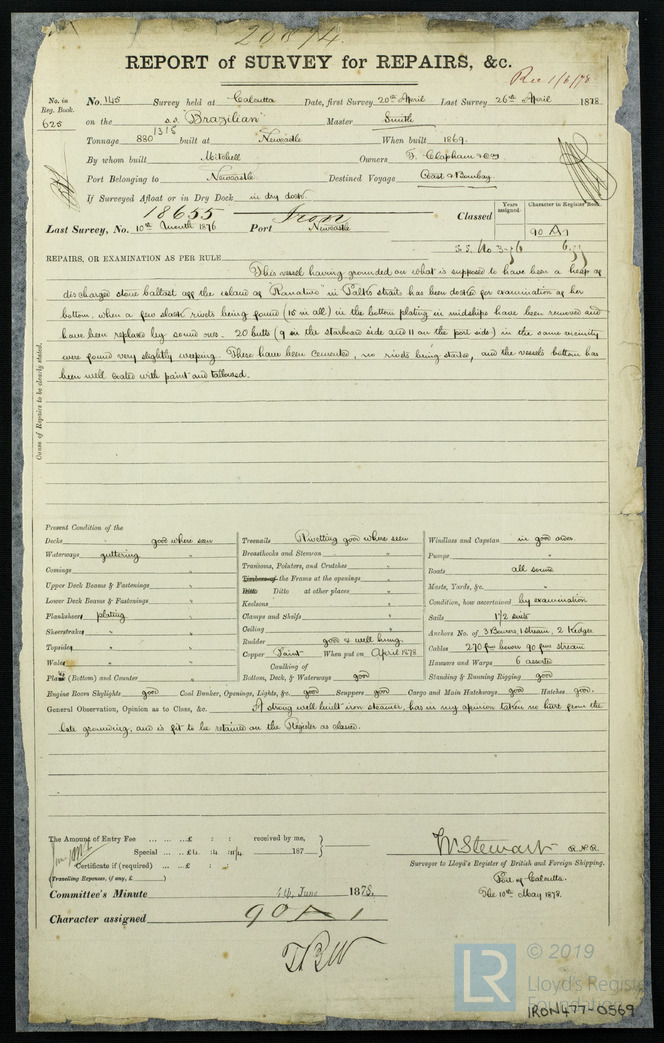 20874.
REPORT of SURVEY for REPAIRS, &c.
Rec 1/6/78
No. in Reg. Book. 625
No. 145 Survey held at Calcutta Date, first Survey 20th April Last Survey 26th April 1878
on the s.s. "Brazilian" Master Smith
Tonnage 880 1318 built at Newcastle When built 1869.
By whom built Mitchell Owners T. Clapham & Co
Port Belonging to Newcastle Destined Voyage Coast & Bombay
If Surveyed Afloat or in Dry Dock in dry dock
Years assigned. Character in Register Book.
18655 Iron Classed 90 A 1
Last Survey, No. 10th Month 1876 Port Newcastle
S.S. No. 3-76
REPAIRS, OR EXAMINATION AS PER RULE
Cause of Repairs to be clearly stated.
This vessel having grounded on what is supposed to have been a heap of
discharged stone ballast off the island of "Ranativo" in Palks straits has been docked for examination of her
bottom, when a few slack rivets being found (15 in all) in the bottom plating in midships have been removed and
have been replaced by sound ones. 20 butts (9 in the starboard side and 11 on the port side) in the same vicinity
were found very slightly weeping. These have been cemented, no rivets being started, and the vessel's bottom has
been well coated with paint and tallowed.
Present Condition of the
Decks good where seen
Waterways guttering "
Comings "
Upper Deck Beams & Fastenings "
Lower Deck Beams & Fastenings "
Planksheers plating "
Sheerstrakes "
Topsides "
Wales "
Plank (Bottom) and Counter "
Treenails Rivetting good where seen
Breasthooks and Stemson "
Transoms, Pointers, and Crutches "
Timbers of the Frame at the openings "
Ditto Ditto at other places "
Keelsons "
Clamps and Shelfs "
Ceiling "
Rudder good & well hung
Copper Paint When put on April 1878
Caulking of
Bottom, Deck, & Waterways good
Windlass and Capstan in good order
Pumps "
Boats all sound
Masts, Yards, &c. "
Condition, how ascertained by examination
Sails 1 1/2 suits
Anchors No. of 3 Bowers, 1 stream, 2 Kedges
Cables 270 fms bower 90 fms stream
Hawsers and Warps 6 assorted
Standing & Running Rigging good
Engine Room Skylights good Coal Bunker, Openings, Lights, &c. good Scuppers good Cargo and Main Hatchways good Hatches good.
General Observation, Opinion as to Class, &c. A strong well built iron steamer, has in my opinion taken no hurt from the
late grounding, and is fit to be retained on the Register as classed.
The Amount of Entry Fee ... ... ... £ : : received by me,
Special ... ... £4. 187
Certificate (if required) ... ... £ : :
(Travelling Expenses, if any, £ )
Committee's Minute 4th June 1878.
Character assigned 90 A 1
W Stewart
Surveyor to Lloyd's Register of British and Foreign Shipping.
Port of Calcutta.
The 10th May 1878.
TBW
LR
© 2019
Lloyd's Register
Foundation
IRON477-0569